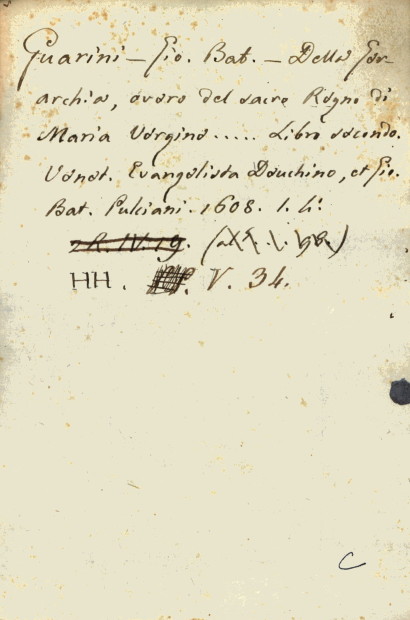 Guarini - Gio. Bat. - Della Ger-
archia, overo del sacro Regno di
Maria Vergine ..... Libro secondo.
Venet. Evangelista Deuchino, et Gio.
Bat. Pulciani. 1608. 1. 4:
R. IV. 19.
HH. V. 34.
C